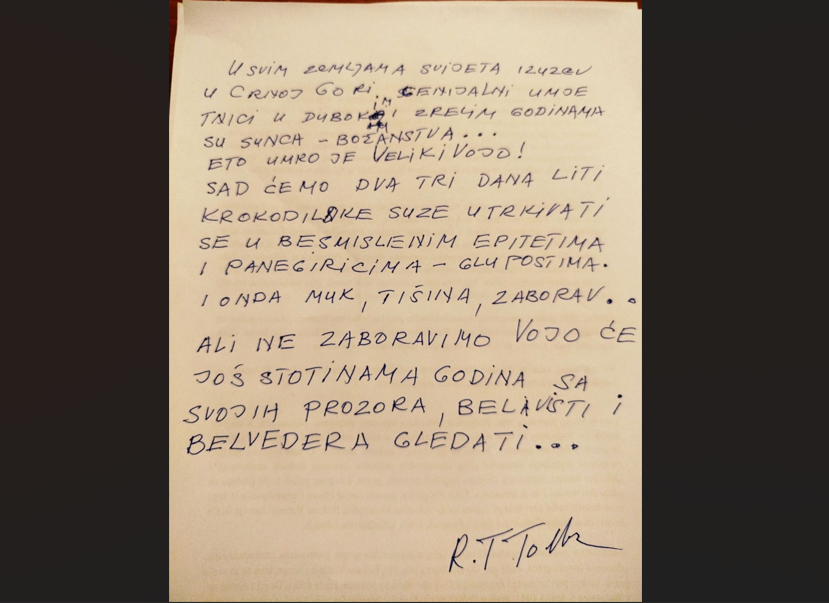 U SVIM ZEMLJAMA SVIJETA IZUZEV
U CRNOJ GORI, GENIJALNI UMJE
TNICI U DUBOKIM I ZRELIM GODINAMA
SU SUNCA - BOŽANSTVA...
ETO UMRO JE VELIKI VOJO!
SAD ĆEMO DVA TRI DANA LITI
KROKODILSKE SUZE UTRKIVATI
SE U BESMISLENIM EPITETIMA
I PANEGIRICIMA - GLUPOSTIMA.
I ONDA MUK, TIŠINA, ZABORAV...
ALI NE ZABORAVIMO VOJO ĆE
JOŠ STOTINAMA GODINA SA
SVOJIH PROZORA, BELAVISTI I
BELVEDERA GLEDATI...
R. T